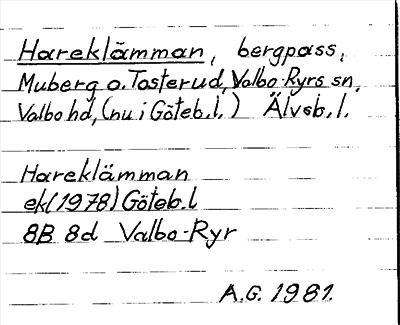 Hareklämman, bergpass,
Muberg o. Tosterud, Valbo-Ryrs sn,
Valbo hd, (nu i Göteb.l.) Älvsb.l.
Hareklämman
ek(1978) Göteb.l
8B 8d Valbo-Ryr
A.G. 1981.